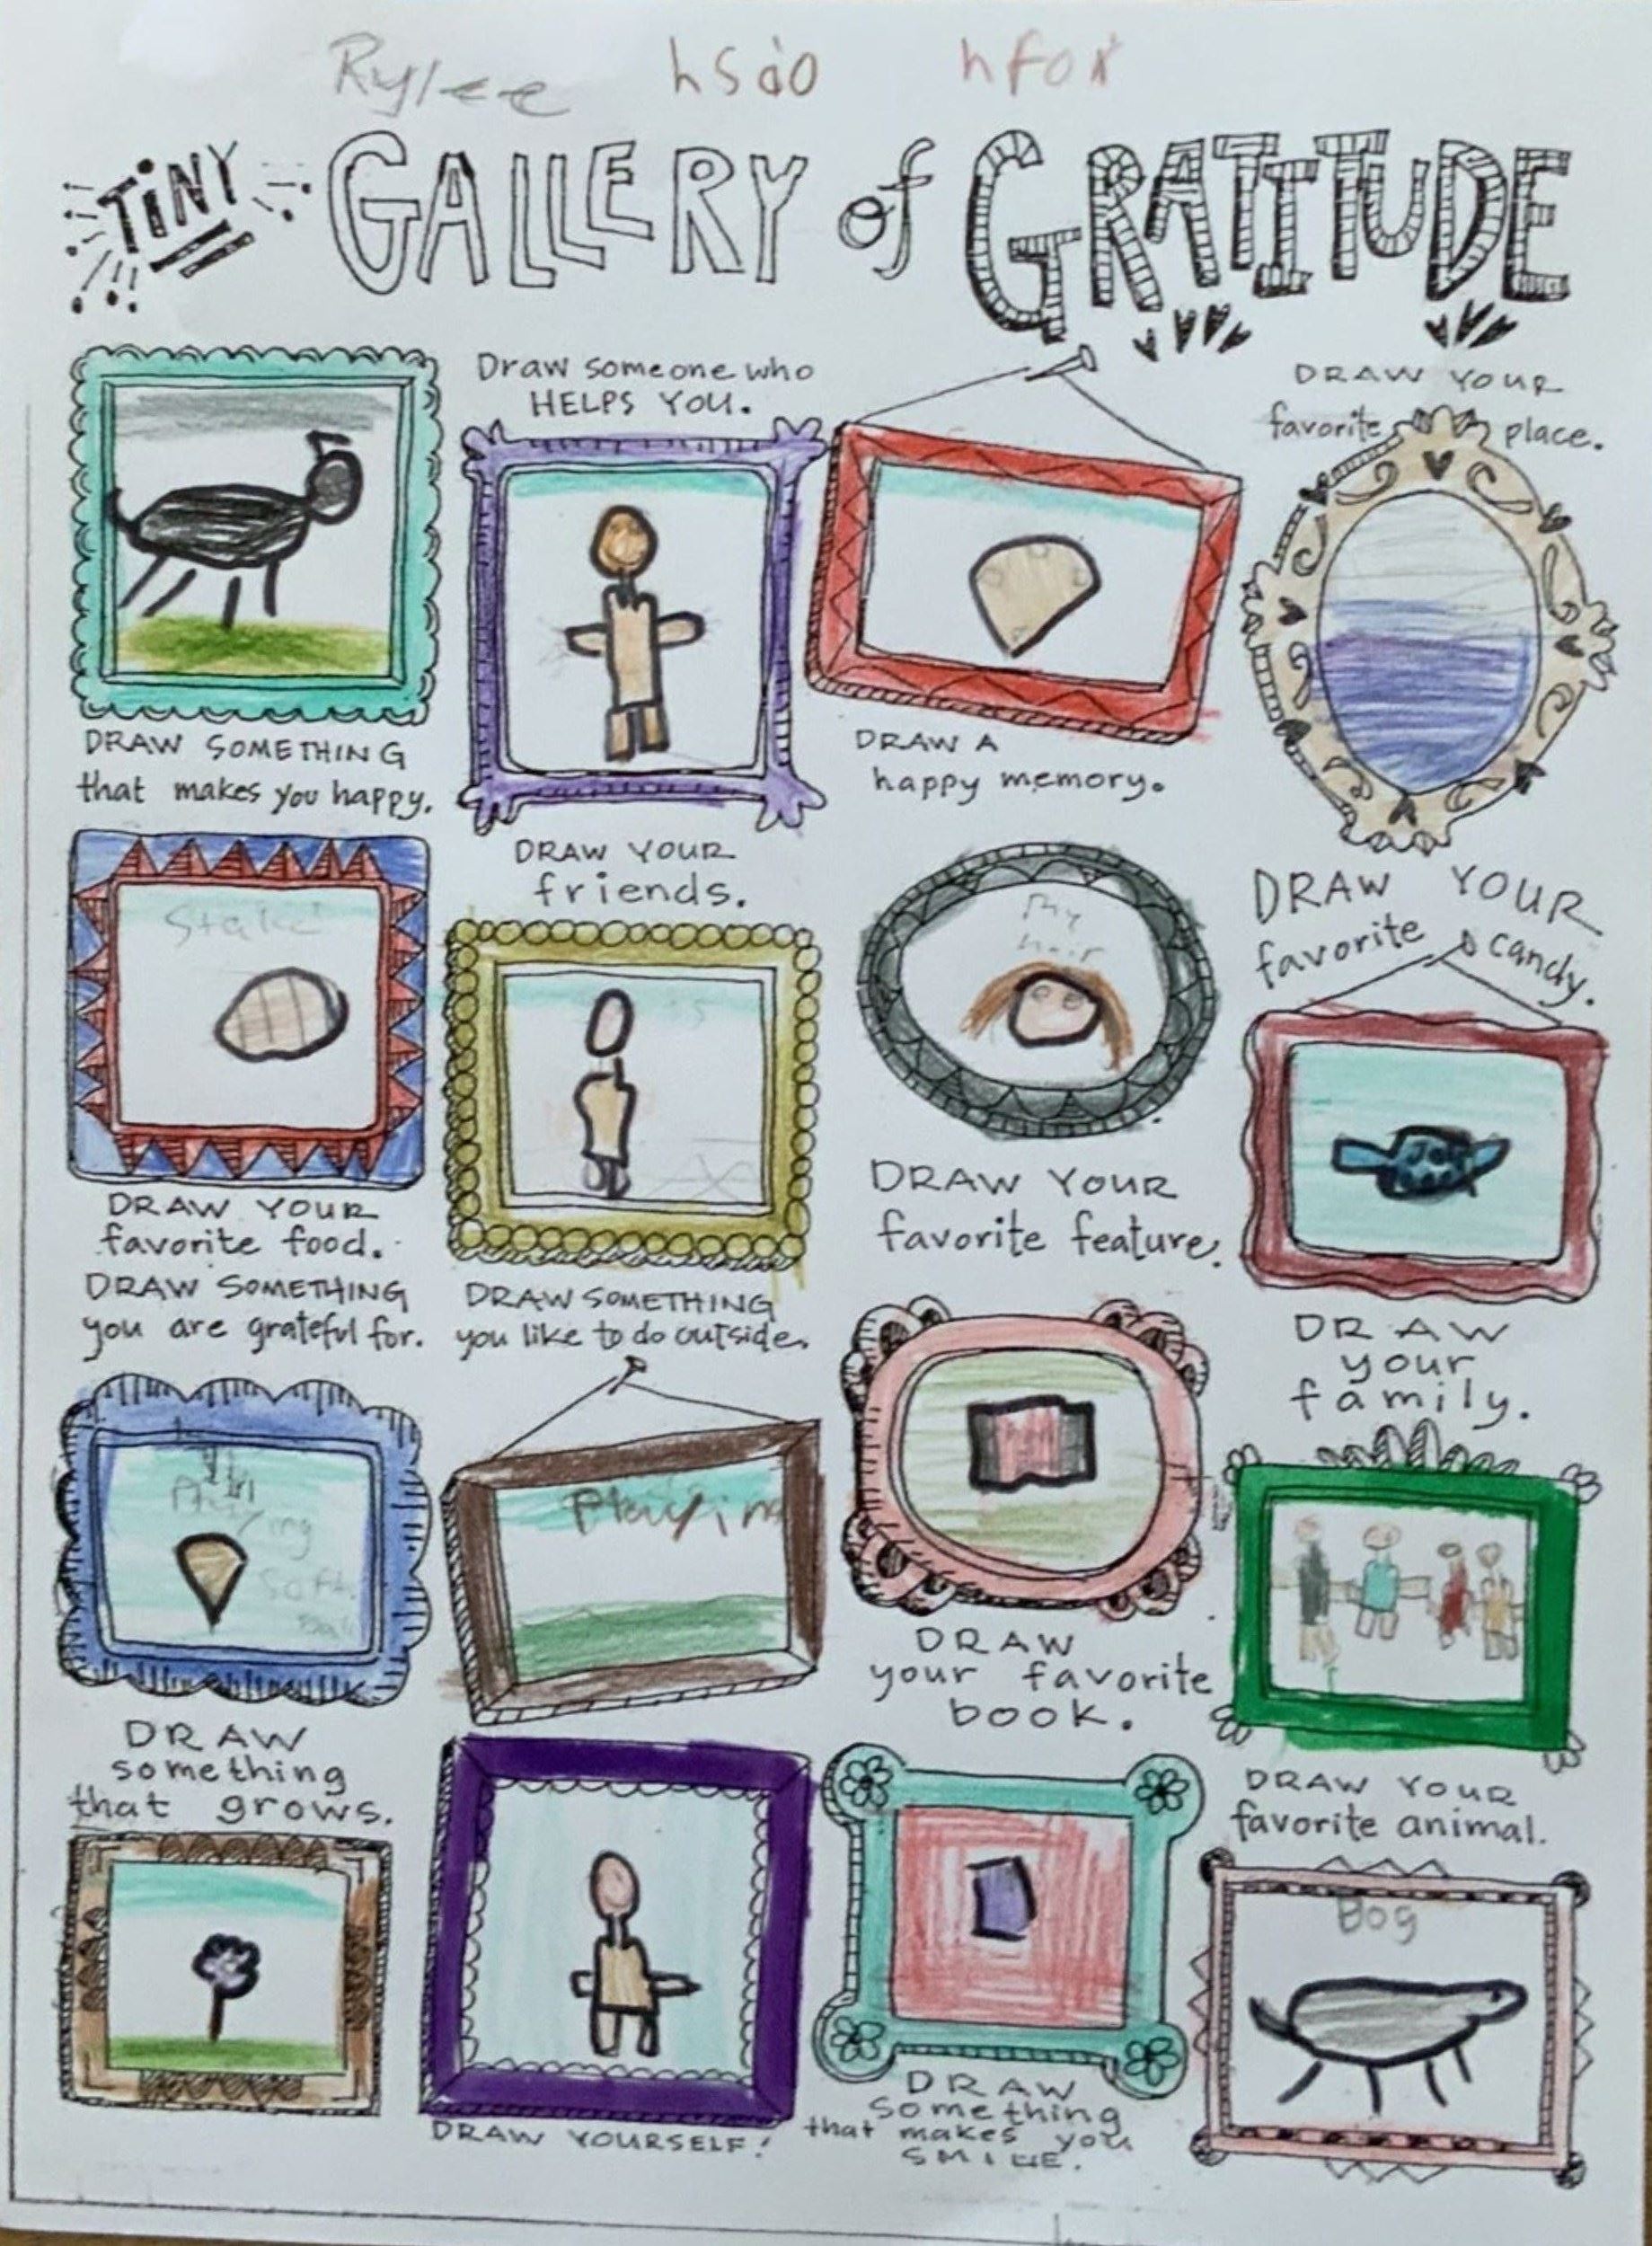 Rylee hsdo hfox
TiNY GALLERY of GRATITUDE
Draw someone who
HELPS YOU.
DRAW YOUR
favorite place.
DRAW SOMETHING
that makes you happy.
DRAW A
happy memory.
DRAW YOUR
friends.
DRAW YOUR
favorite candy.
my
hair
DRAW YOUR
favorite food.
DRAW YOUR
favorite feature.
DRAW SOMETHING
you are grateful for.
DRAW SOMETHING
you like to do outside.
DRAW
your
family.
Playing
Soft
Ball
Playing
DRAW
your favorite
book.
DRAW
something
that grows.
DRAW YOUR
favorite animal.
Bog
DRAW YOURSELF!
DRAW
something
that makes you
SMILE.